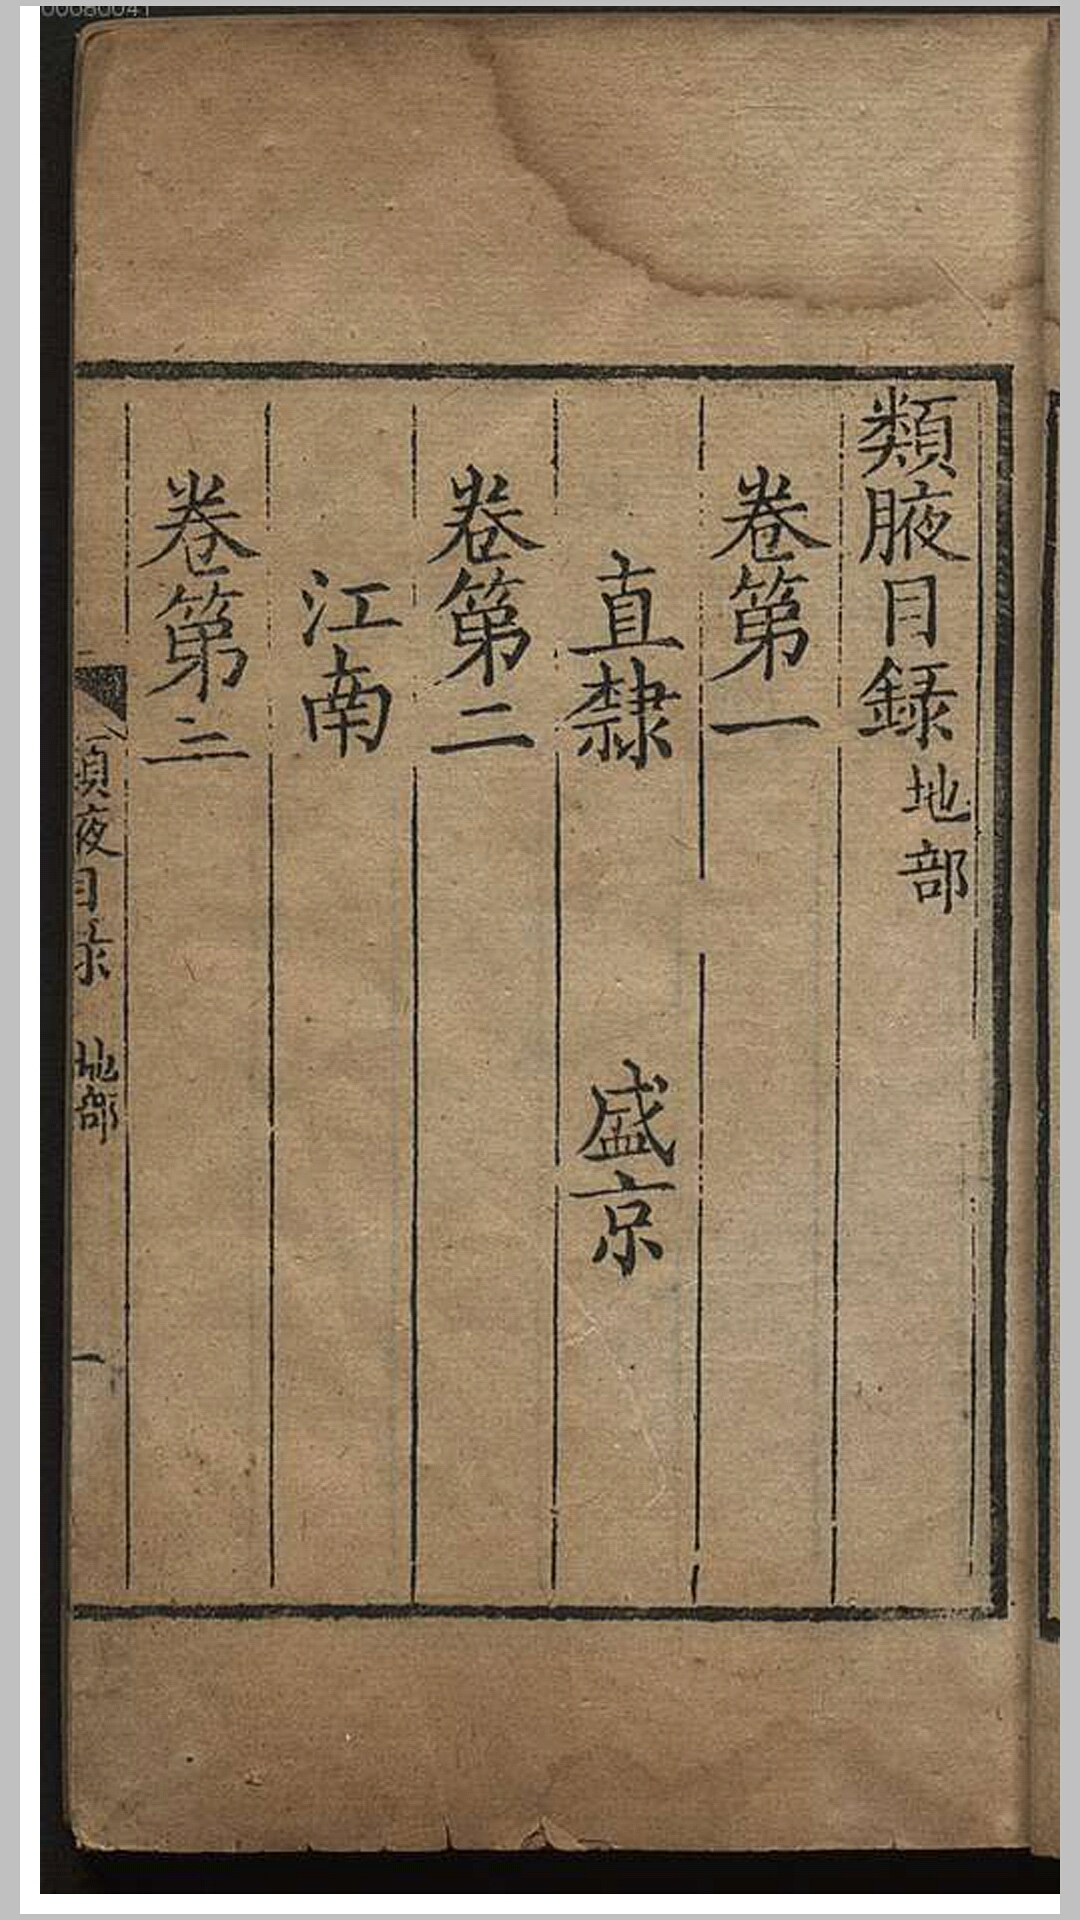 類腋目録地部
卷第一
直隸 盛京
卷第二
江南
卷第三
類腋目錄 地部 一